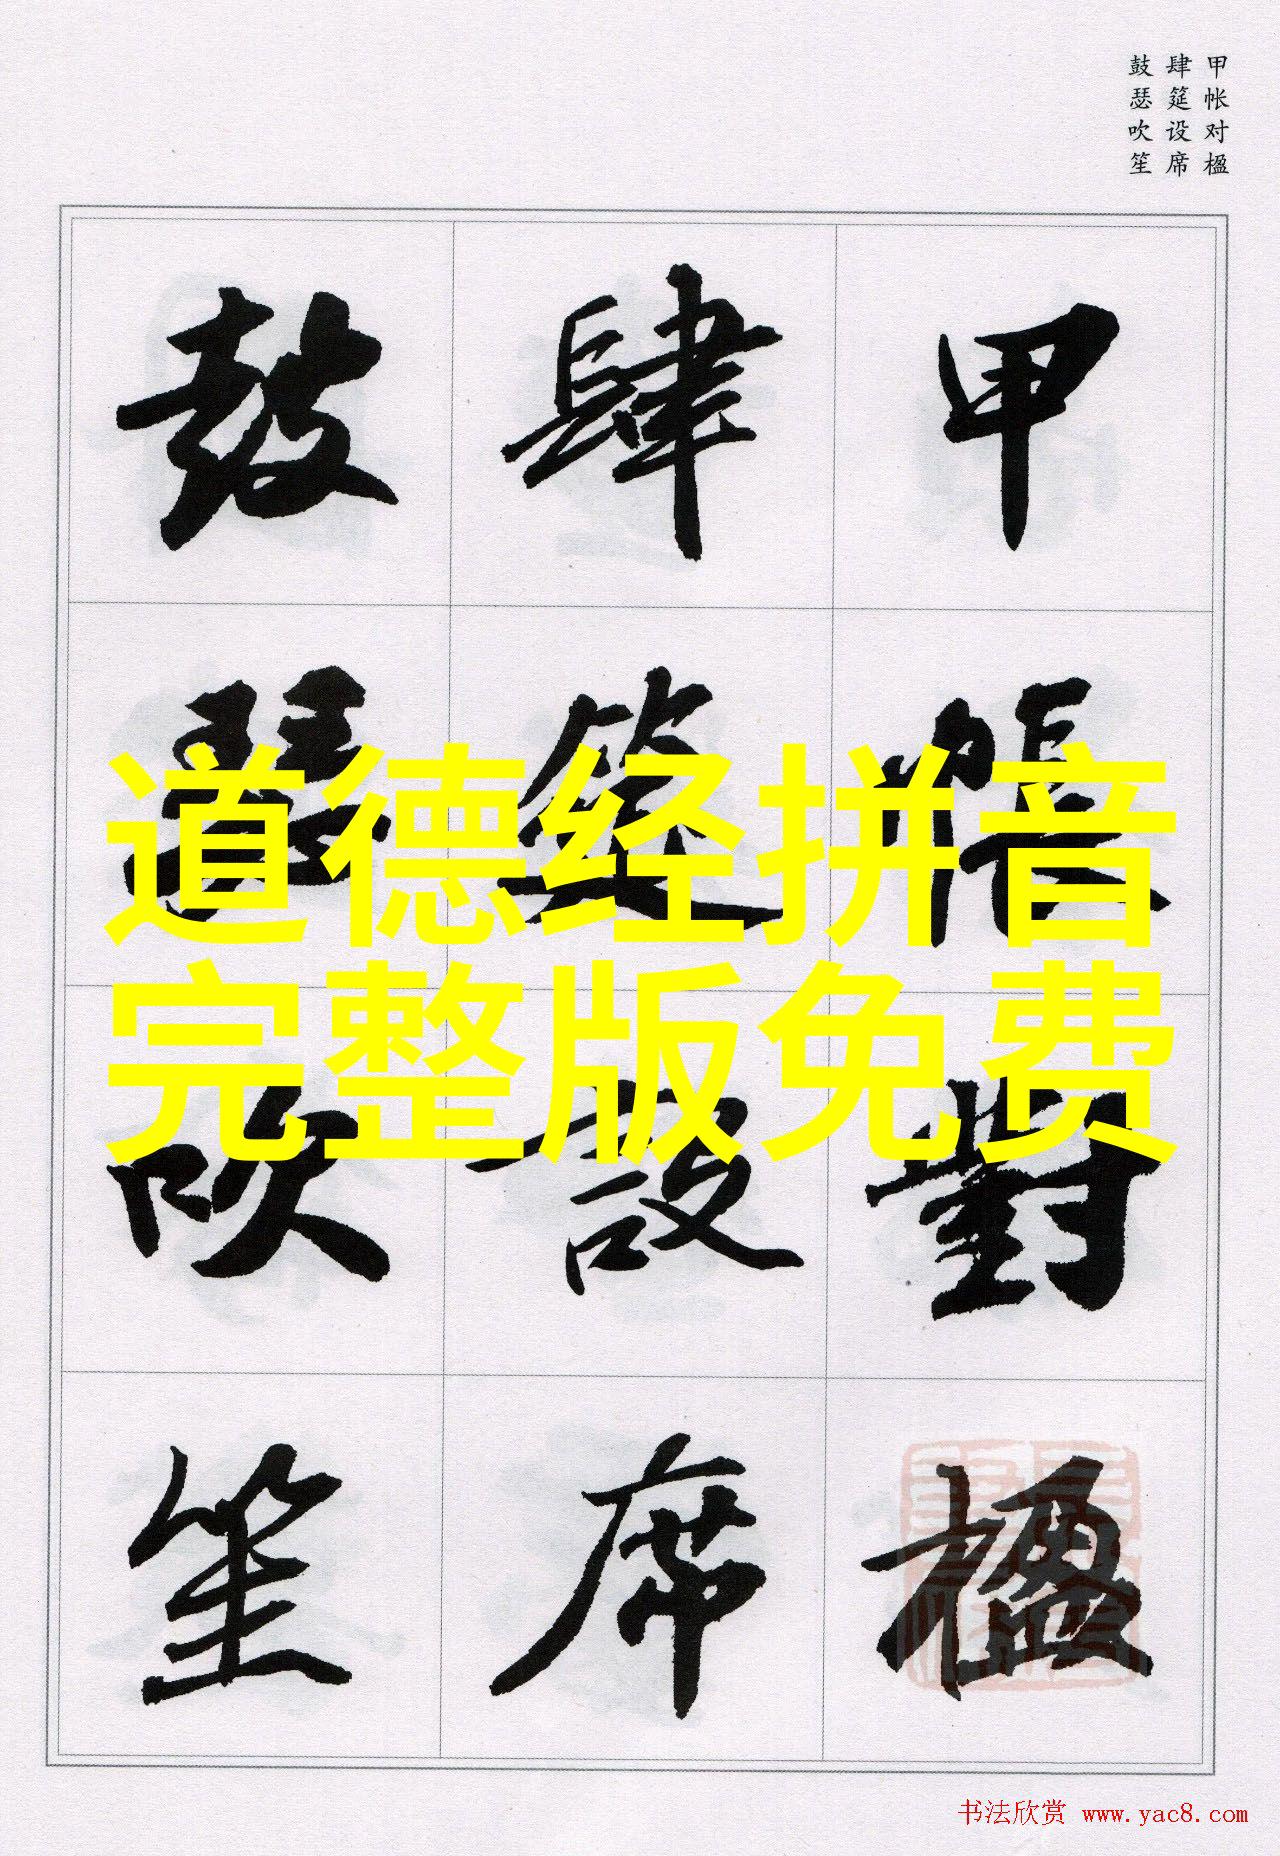 甲帐对楹
肆筵设席
鼓瑟吹笙
甲帳對楹
肆筵設席
鼓瑟吹笙
道德经拼音
完整版免费
书法欣赏 www.yac8.com